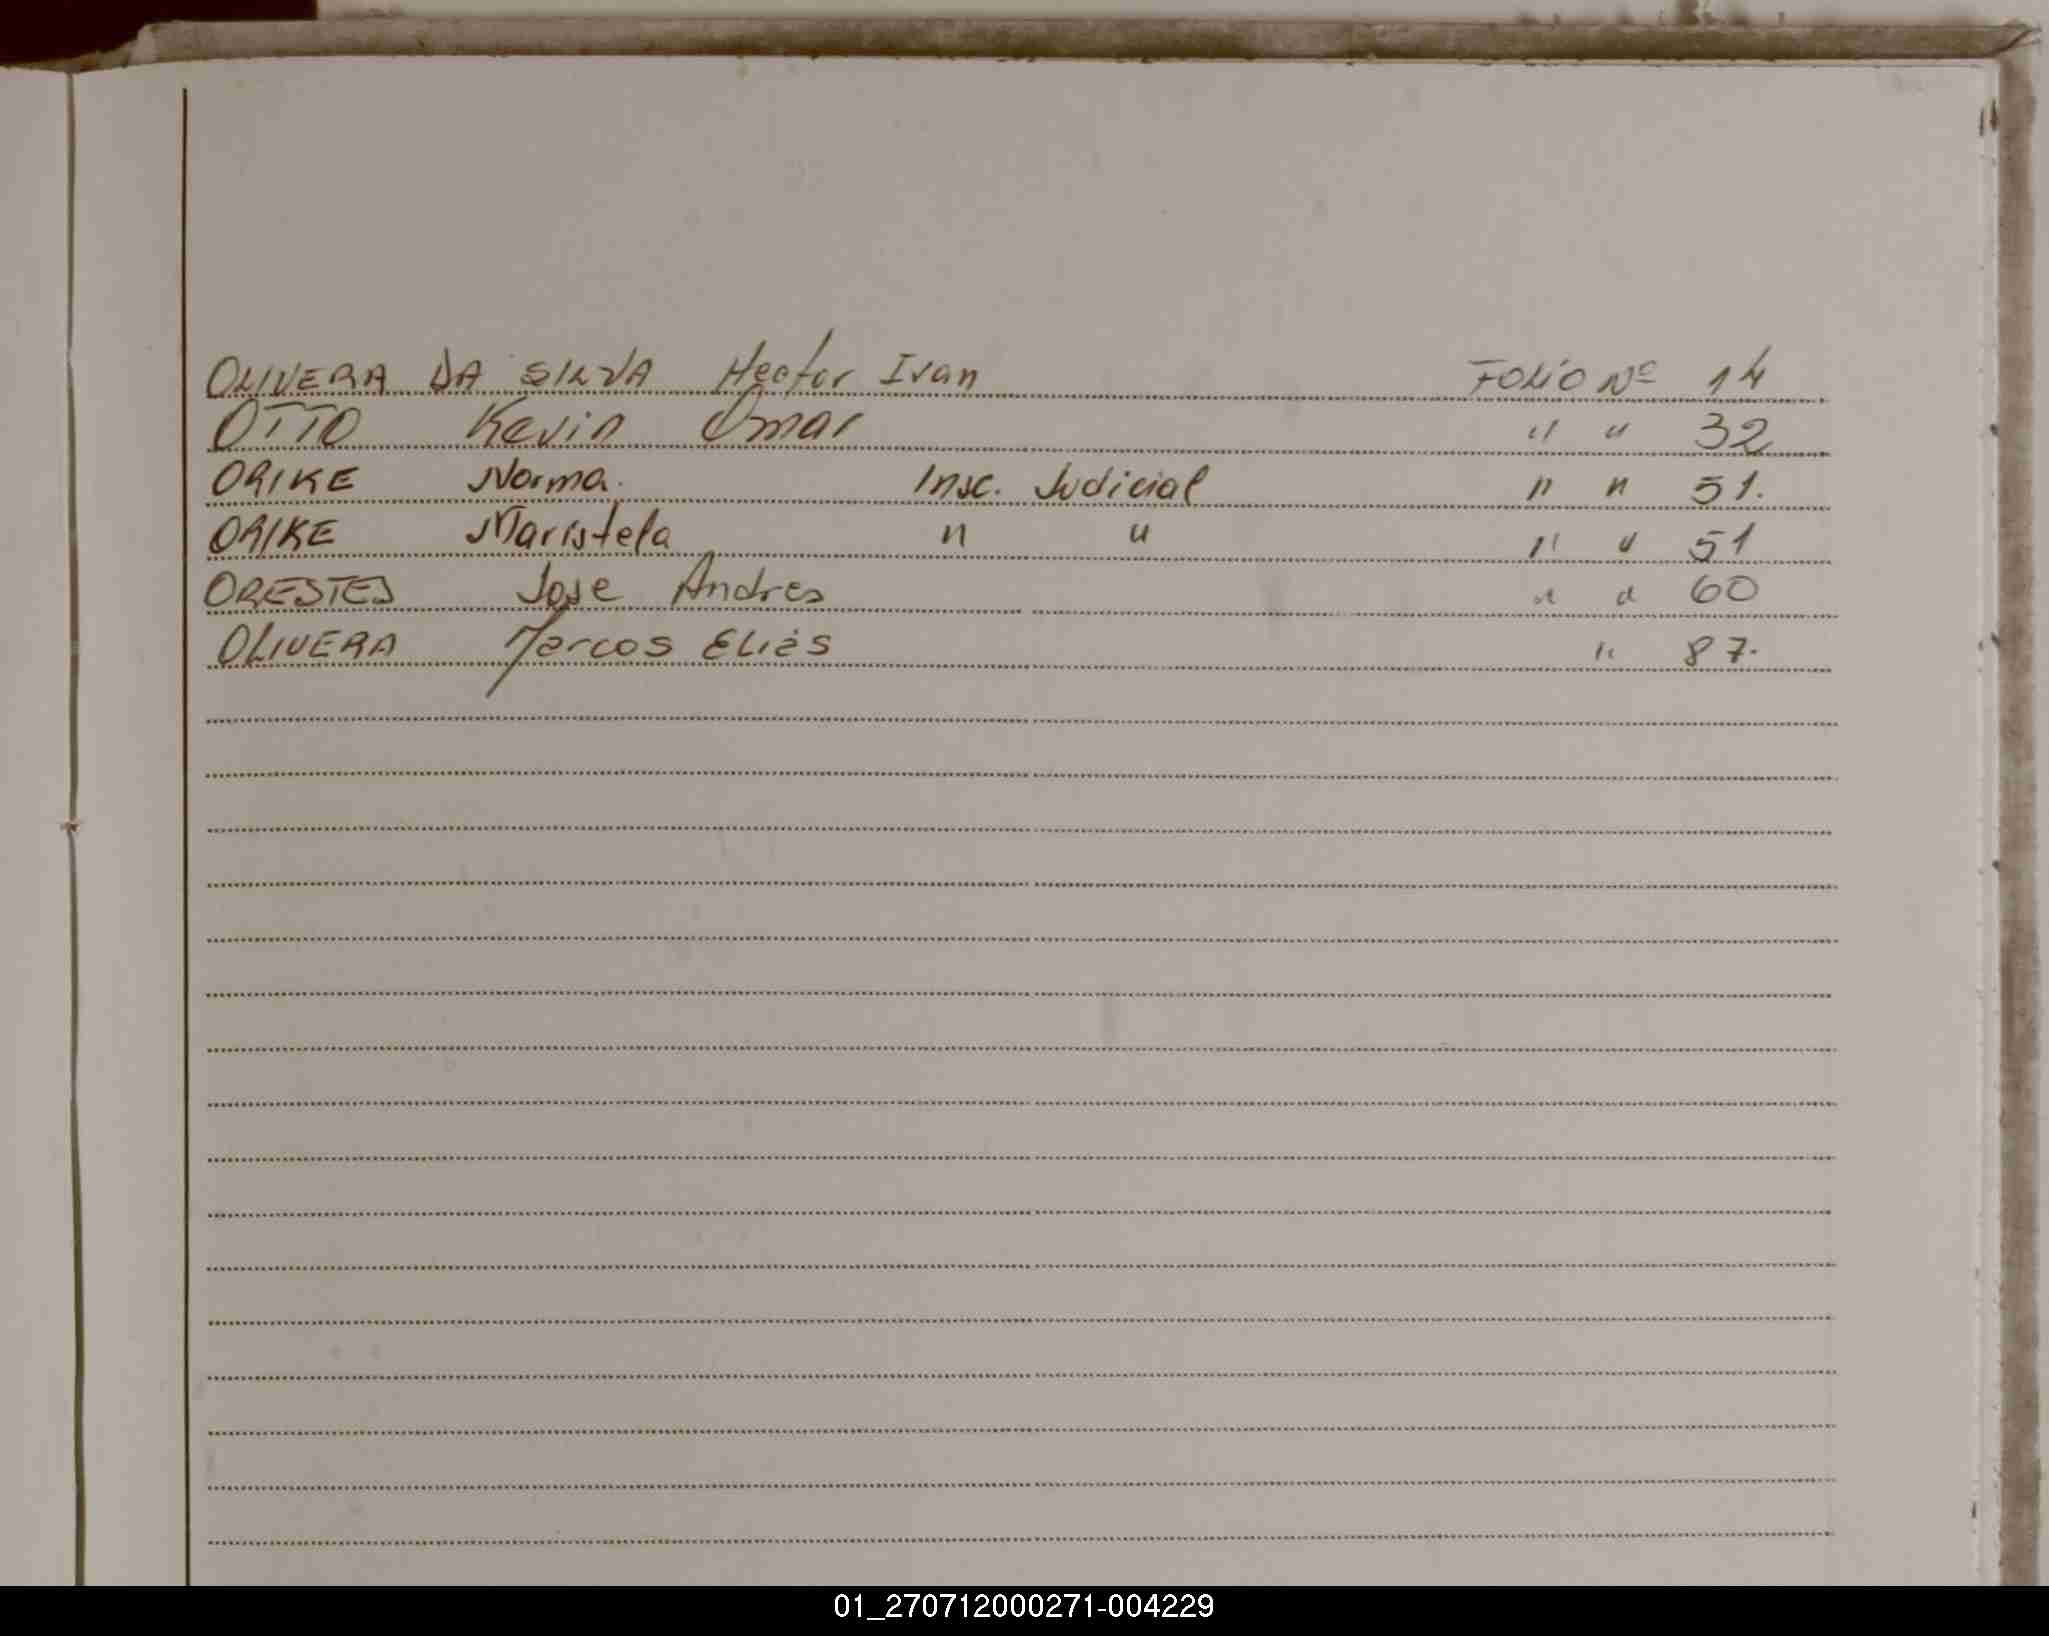 OLIVERA DA SILVA Hector Ivan FOLIO Nº 14
OTTO Kevin Omar " " 32
ORIKE Norma. Insc. Judicial " " 51.
ORIKE Maristela " " " " 51
ORESTES Jose Andres " " 60
OLIVERA Marcos Eliàs " 87.
01_270712000271-004229